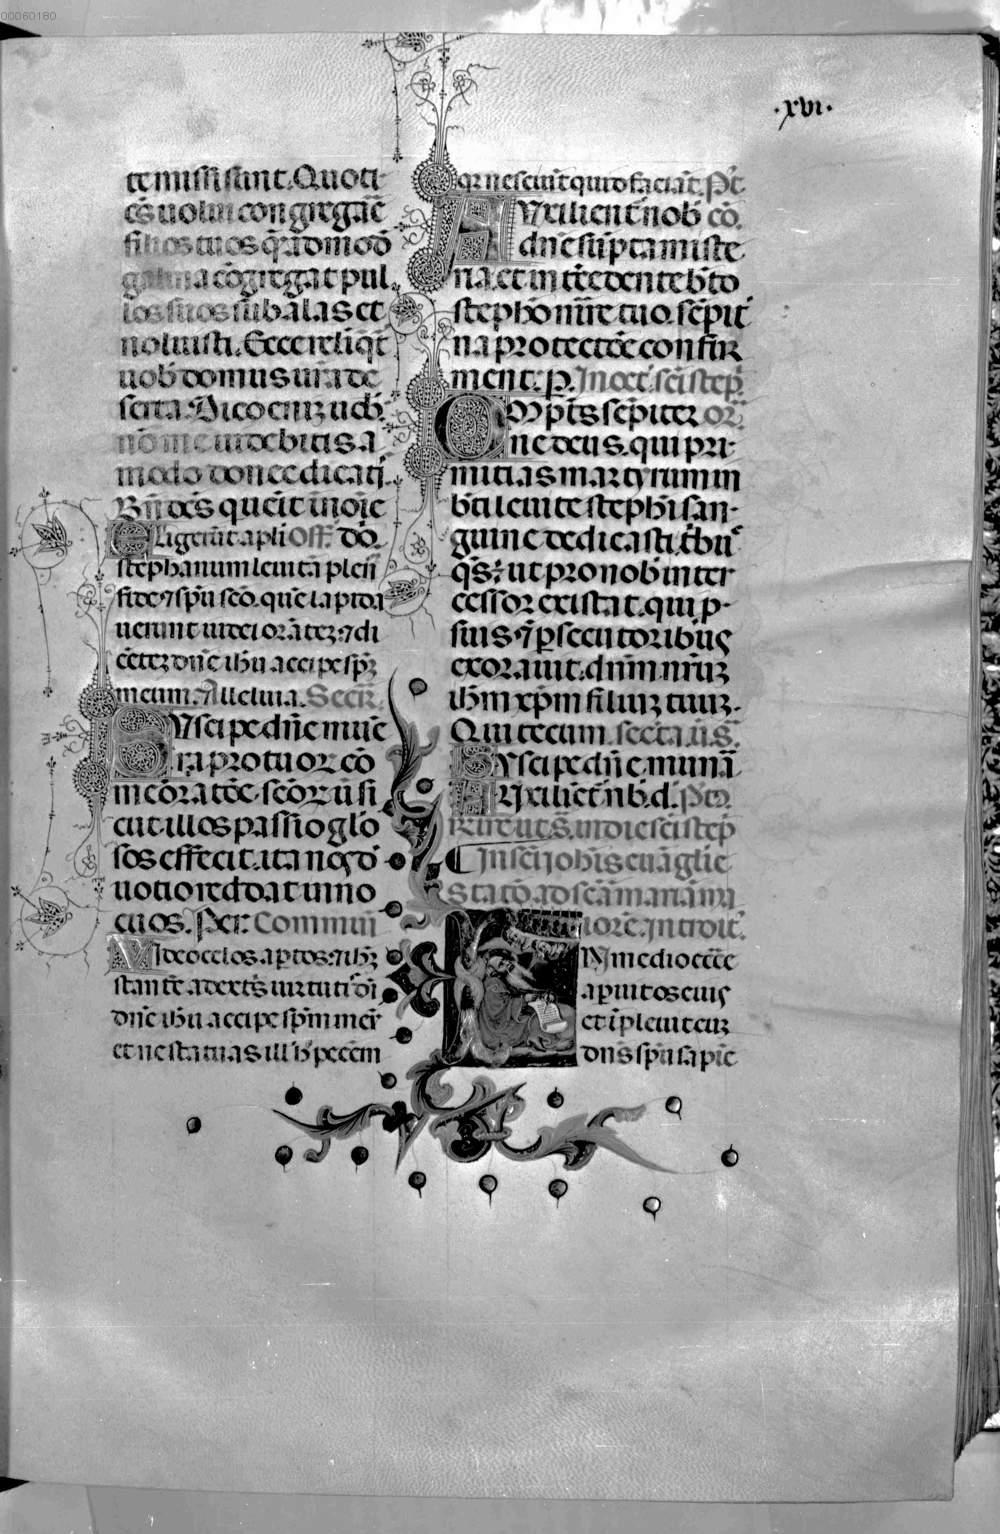 00060180
·xvi·
te missi sunt. Quoti-
ēs uolui congregāē
filios tuos q̄admodō
galina cōgregat pul
los suos sub alas et
noluisti. Ecce relīqt̄
uob̄ domus uīa de
serta. Dico eniꝫ uob̄.
nō me uidebitis. a
modo donec dicatꝭ.
Bn̄dc̄s qui ueīt ī noīe
Eligerūt apli Off. dō.
stephanum leuitā plenū
fide ⁊ spū scō. quē lapida
uerunt iudei orātez: ⁊ di
cētez dn̄e ih̄u accipe spm̄
meum. Alleluia. Secr̄.
Suscipe dn̄e mune
ra pro tuoꝝ cō
meōratōe scōꝝ: ū si
cut illos passio glō
sos effecit. ita nos d̄
uotio reddat inno
cuos. Per. Commun̄
Video celos aptos: ⁊ ih̄ꝫ
stantē a dextꝭs uirtutꝭ dī
dn̄e ih̄u accipe spm̄ meū
et ne statuas ill̄ h̄ peccm̄
qꝛ nesciūt quid faciāt. P̄c̄.
Auxilient̄ nob̄ cō.
dn̄e sūpta miste
ria. et intc̄edente b̄to
stephō mr̄e tuo. sēpit̄
na protectōe confir
ment. P. In oct̄. sc̄i step̄.
Omp̄ts sēpiter or̄.
ne deus. qui pri-
mitias martyrum in
b̄ti leuite stephi san-
guine dedicasti. t̄bu
q̄s: ut pro nob̄ inter
cessor existat. qui p-
suis ⁊ psecutoribus
exorauit. dn̄m nr̄uꝫ
ih̄m xp̄m filiuꝫ tuuꝫ.
Qui tecum. secr̄ta. ū. s̄.
Suscipe dn̄e. munā
Auxiliēt̄ nb̄. d. P̄cō.
Require ut s̄. in die sc̄i step̄
In sc̄i ioh̄is euāglie
Statō ad sc̄am mariā ma
iorē. Introit̄.
In medio ecc̄e
apuit os eius
et īpleuit euꝫ
dn̄s spū sapiē